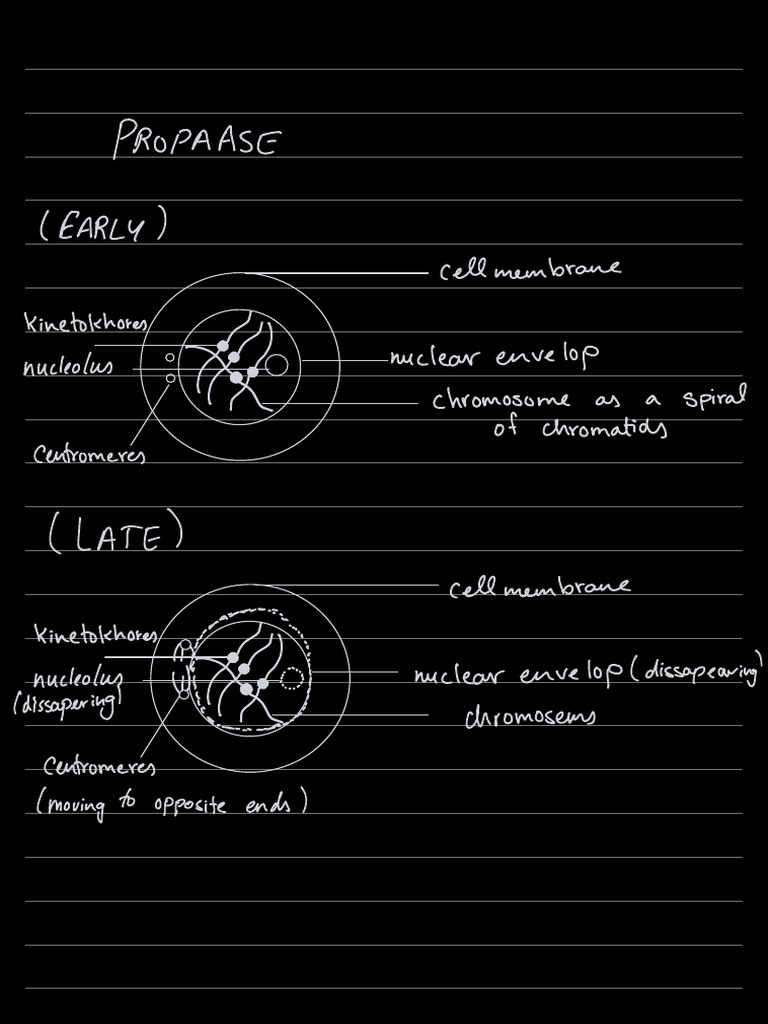 PROPAASE
(EARLY)
cell membrane
kinetokhores
nucleolus
nuclear envelop
chromosome as a spiral
of chromatids
Centromeres
(LATE)
cell membrane
kinetokhores
nucleolus
(dissapering)
nuclear envelop (dissapearing)
chromosems
Centromeres
(moving to opposite ends)